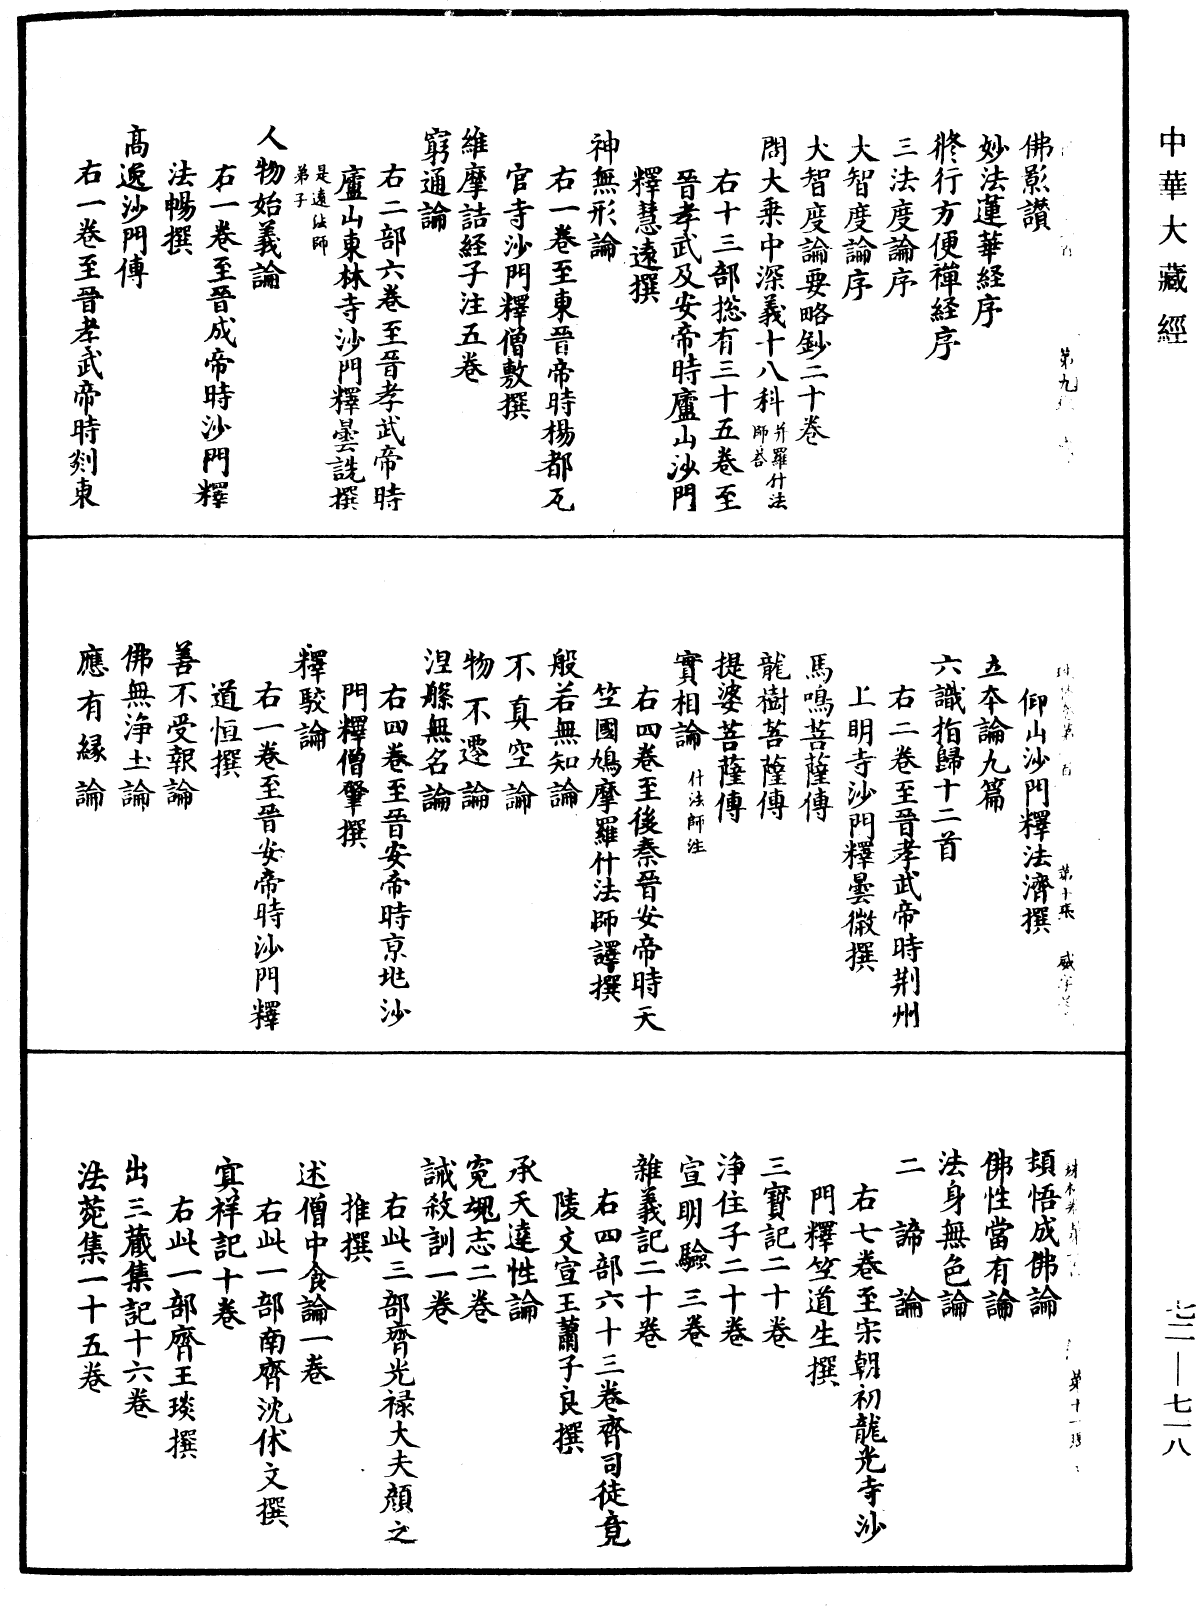 中華大藏經
佛影讃
妙法蓮華経序
修行方便禪経序
三法度論序
大智度論序
大智度論要略鈔二十巻
問大乗中深義十八科 并羅什法師荅
右十三部揔有三十五巻至
晉孝武及安帝時廬山沙門
釋慧遠撰
神無形論
右一巻至東晉帝時楊都瓦
官寺沙門釋僧敷撰
維摩詰経子注五巻
窮通論
右二部六巻至晉孝武帝時
廬山東林寺沙門釋曇詵撰
是遠法師弟子
人物始義論
右一巻至晉成帝時沙門釋
法暢撰
髙逸沙門傳
右一巻至晉孝武帝時剡東
仰山沙門釋法濟撰
立本論九篇
六識指歸十二首
右二巻至晉孝武帝時荆州
上明寺沙門釋曇微撰
馬鳴菩薩傳
龍樹菩薩傳
提婆菩薩傳
實相論 什法師注
右四巻至後秦晉安帝時天
竺國鳩摩羅什法師譯撰
般若無知論
不真空論
物不遷論
涅槃無名論
右四巻至晉安帝時京地沙
門釋僧肇撰
釋駁論
右一巻至晉安帝時沙門釋
道恒撰
善不受報論
佛無浄土論
應有縁論
頓悟成佛論
佛性當有論
法身無色論
二諦論
右七巻至宋朝初龍光寺沙
門釋竺道生撰
三寳記二十巻
浄住子二十巻
宣明驗三巻
雜義記二十巻
右四部六十三巻齊司徒竟
陵文宣王蕭子良撰
承天達性論
寃魂志二巻
誡殺訓一巻
右此三部齊光禄大夫顔之
推撰
述僧中食論一巻
右此一部南齊沈休文撰
冥祥記十巻
右此一部齊王琰撰
出三蔵集記十六巻
法菀集一十五巻
七二—七一八